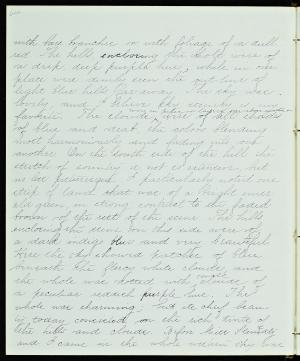 with bare branches or with foliage of a dull
red. The hills enclosing the whole were of
a deep deep purple hue, while in one
place were dimly seen the outline of
light blue hills far away. The sky was
lovely, and I think sky scenery is my
favorite. The clouds were of all shades
of blue and violet the colors blending
most harmoniously and fading into one
another. On the south side of the hill the
stretch of country is not so extensive, but
no less pleasing. I particularly noticed one
strip of land that was of a bright emer
ald green, in strong contrast to the faded
brown of the rest of the scene. The hills
enclosing the scene on this side were of
a dark indigo blue and very beautiful.
Here the sky showed patches of blue
beneath the fleecy white clouds and
the whole was dotted with clouds of
a peculiar reddish purple hue. The
whole was charming but its chief charm
to today consisted in the rich tints of
the hills and clouds. Before Miss
and I came in the whole western sky was